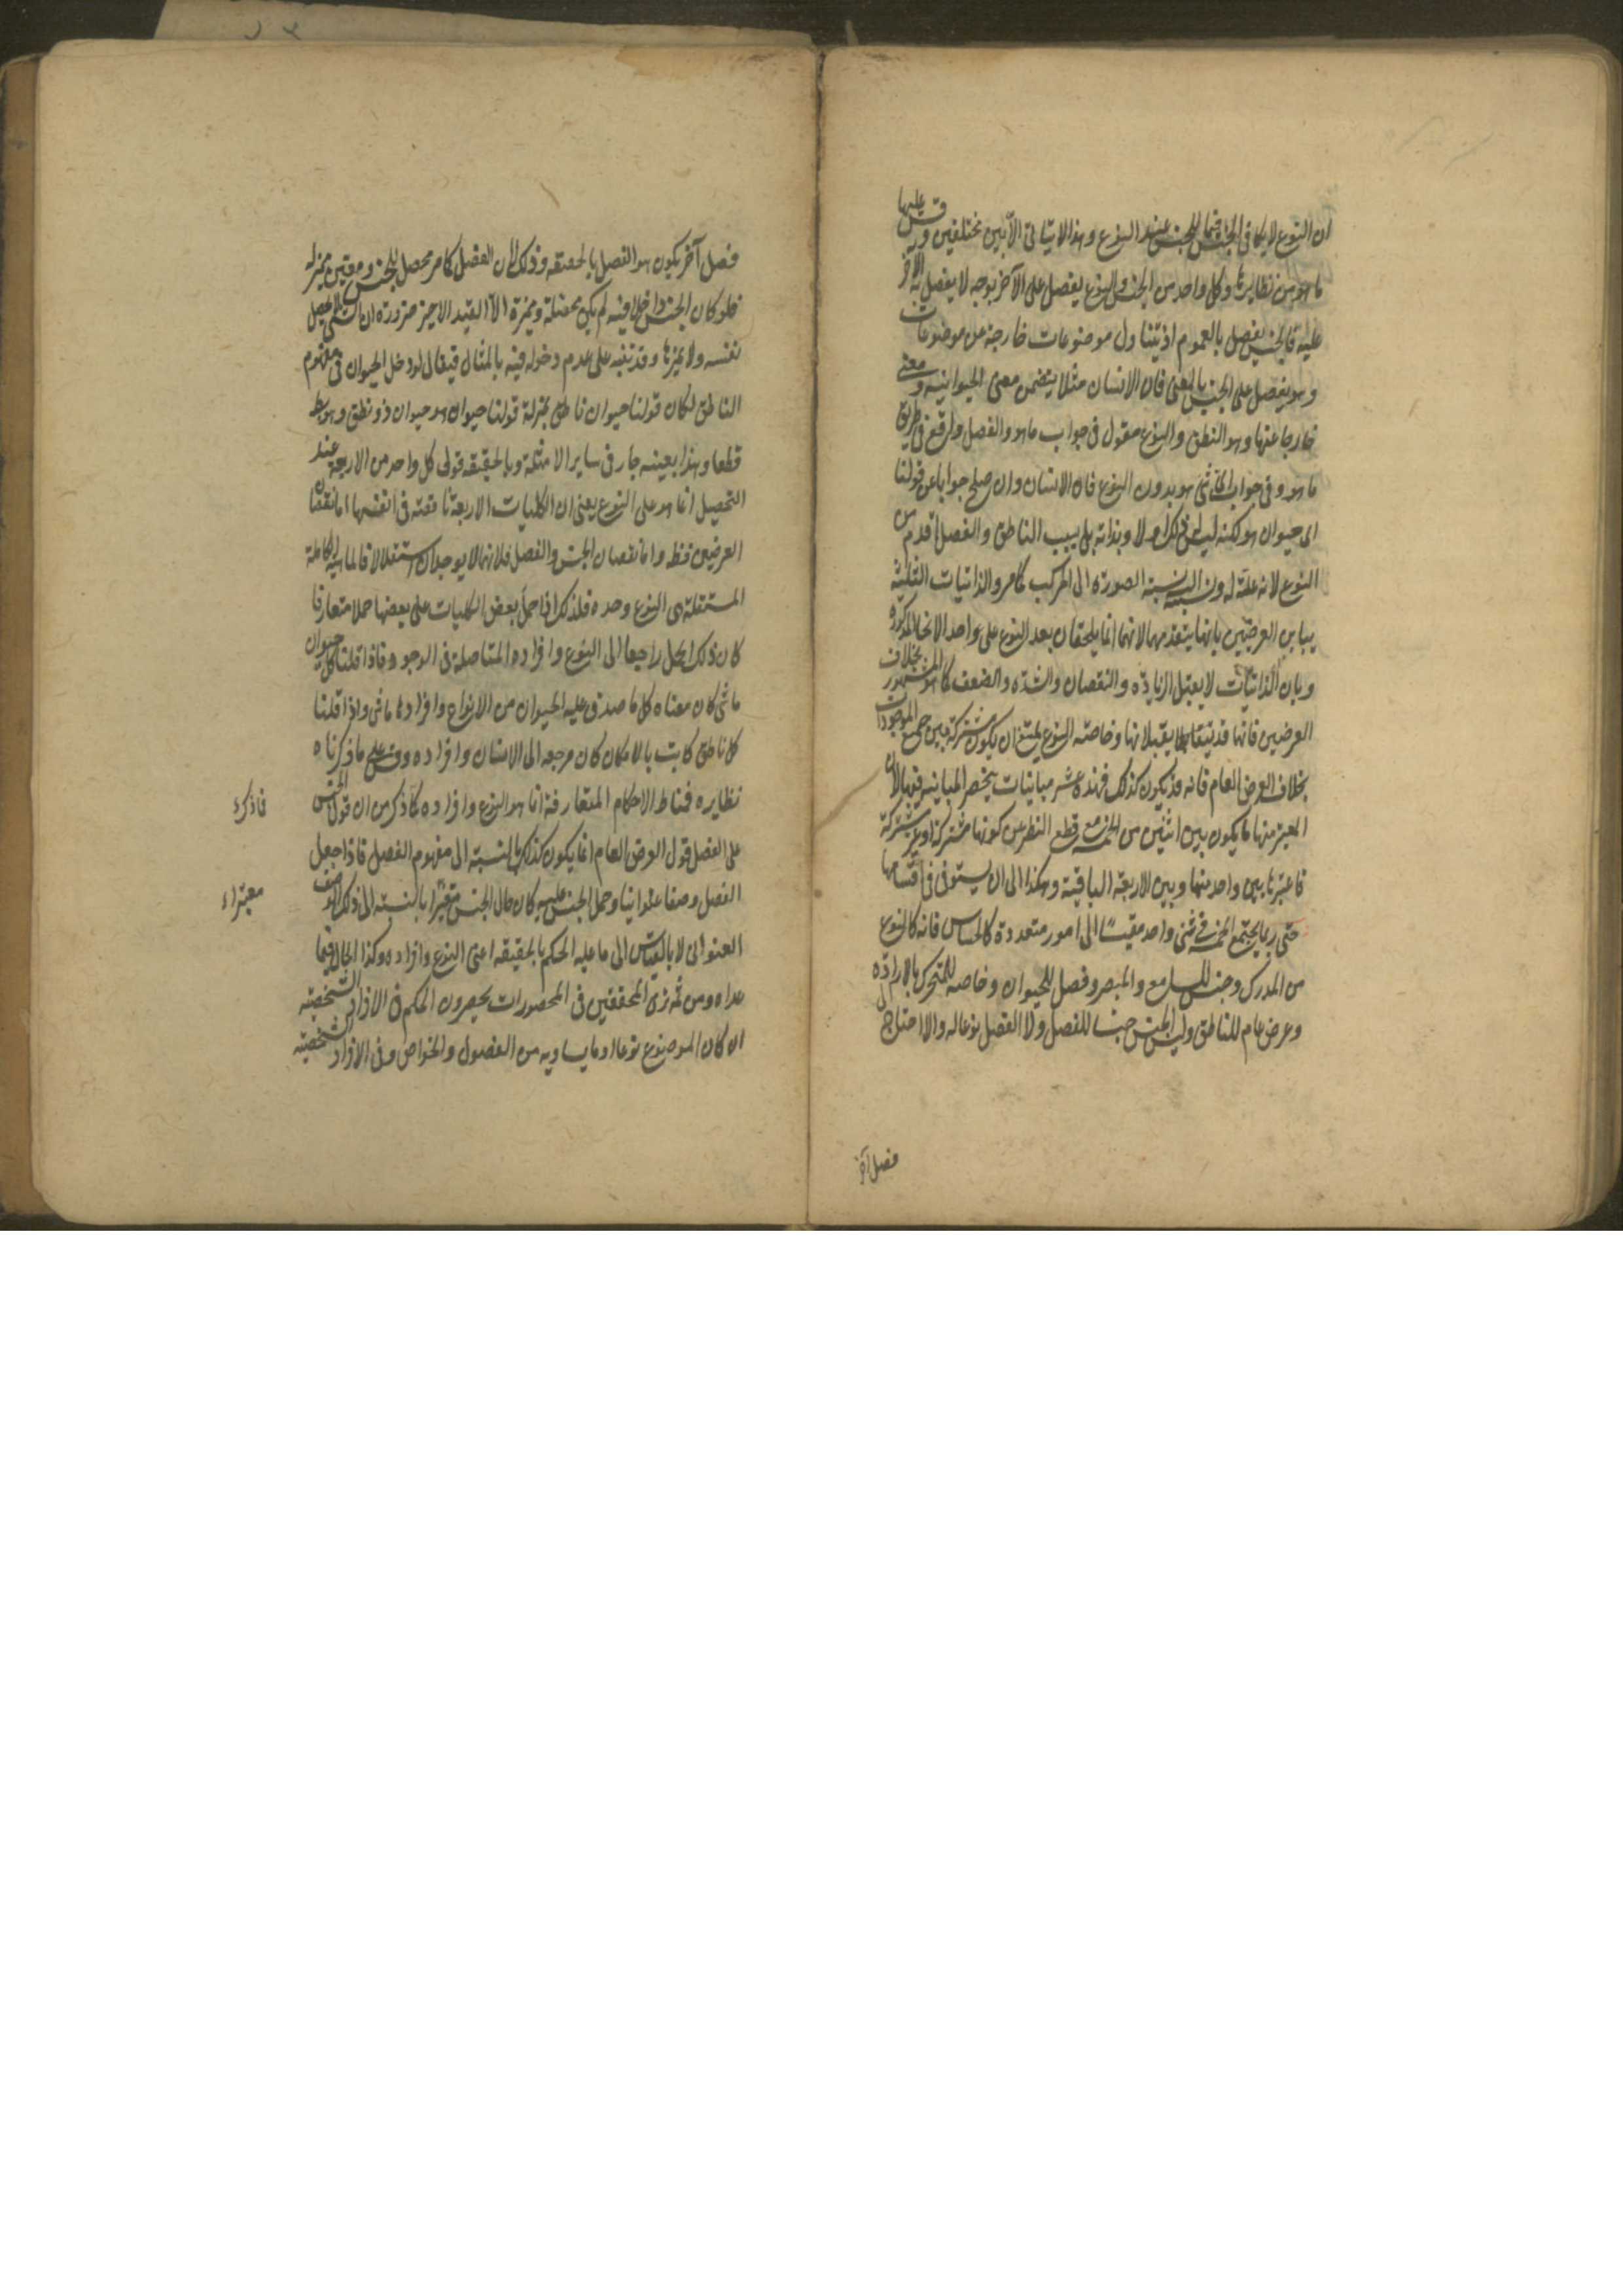 ان النوع لا يكافى الجنس عند النوع وهذا لا يتأتى الا بين مختلفين وقس عليها
ما هو من نظايرها وكل واحد من الجنس والنوع يفصل على الآخر بوجه لا يفصل به الآخر
عليه فالجنس يفصل بالعموم اذ يتناول موضوعات خارجة عن موضوعات
وهو يفصل على الجنس بالمعنى فان الانسان مثلا يتضمن معنى الحيوانية ومعنى
خارجا عنها وهو النطق والنوع مقول فى جواب ما هو والفصل واقع فى طريق
ما هو وفى جواب اى شئ هو بدون النوع فان الانسان وان صلح جوابا عن قولنا
اى حيوان هو لكنه ليس كذلك اولا وبذاته بل بسبب الناطق والفصل اقدم من
النوع لانه علة له ونسبته اليه نسبة الصورة الى المركب كما مر والذاتيات الثلثة
يباين العرضيين بانها يتقدمهما لانهما انما يلحقان بعد النوع على واحد الانحاء المذكورة
وبان الذاتيات لا يقبل الزيادة والنقصان والشدة والضعف كما هو المشهور بخلاف
العرضيين فانها قد يقبلانها وخاصة النوع يمتنع ان يكون مشتركة بين جميع الموجودات
بخلاف العرض العام فانه قد يكون كذلك فهذه عشر مباينات ينحصر المباينة فيها لان
المعتبر منها ما يكون بين اثنين من الخمسة مع قطع النظر عن كونها مشتركة او غير مشتركة
فاعتبرنا بين واحد منها وبين الاربعة الباقية وهكذا الى ان يستوفى اقسامها
حتى ربما يجتمع الخمسة فى شئ واحد مقيسا الى امور متعددة كالحساس فانه كالنوع
من المدرك وجنس للسامع والمبصر وفصل للحيوان وخاصة للمتحرك بالارادة
وعرض عام للناطق وليس الجنس جنسا للفصل ولا الفصل نوعا له والا احتاج الى
فصل آخر
فصل آخر يكون هو الفصل بالحقيقة وذلك لان الفصل كما مر محصل للجنس ومعين مميز له
فلو كان الجنس داخلا فيه لم يكن محصلة ومميزة الا القيد الاخير ضرورة ان الشئ لا يحصل
نفسه ولا يميزها وقد ينبه على عدم دخوله فيه بالمثال فيقال لو دخل الحيوان فى مفهوم
الناطق لكان قولنا حيوان ناطق بمنزلة قولنا حيوان هو حيوان ذو نطق وهو بط
قطعا وهذا بعينه جار فى ساير الامثلة وبالحقيقة قول كل واحد من الاربعة عند
التحصيل انما هو على النوع يعنى ان الكليات الاربعة ناقصة فى انفسها اما نقصان
العرضيين فظ واما نقصان الجنس والفصل فلانهما لا يوجدان استقلالا فالماهية الكاملة
المستقلة هى النوع وحده فلذلك اذا حمل بعض الكليات على بعضها حملا متعارفا
كان ذلك الحمل راجعا الى النوع وافراده المتاصلة فى الوجود فاذا قلنا كل حيوان
ماشى كان معناه كل ما صدق عليه الحيوان من الانواع وافرادها ماشى واذا قلنا
كل ناطق كاتب بالامكان كان مرجعه الى الانسان وافراده وقس على ما ذكرناه
نظايره فمناط الاحكام المتعارفة انما هو النوع وافراده فما ذكر من ان قول الجنس
فاذكره
على الفصل قول العرض العام انما يكون كذلك بالنسبة الى مفهوم الفصل فاذا جعل
الفصل وصفا عنوانيا وحمل الجنس عليه كان حال الجنس معتبرا بالنسبة الى ذلك الوصف
معتبرا
العنوانى لا بالقياس الى ما عليه الحكم بالحقيقة اعنى النوع وافراده وكذا الحال فيما
عداه ومن ثمه نرى المحققين فى المحصورات يحصرون الحكم فى الافراد الشخصية
ان كان الموضوع نوعا او ما يساويه من الفصول والخواص وفى الافراد الشخصية